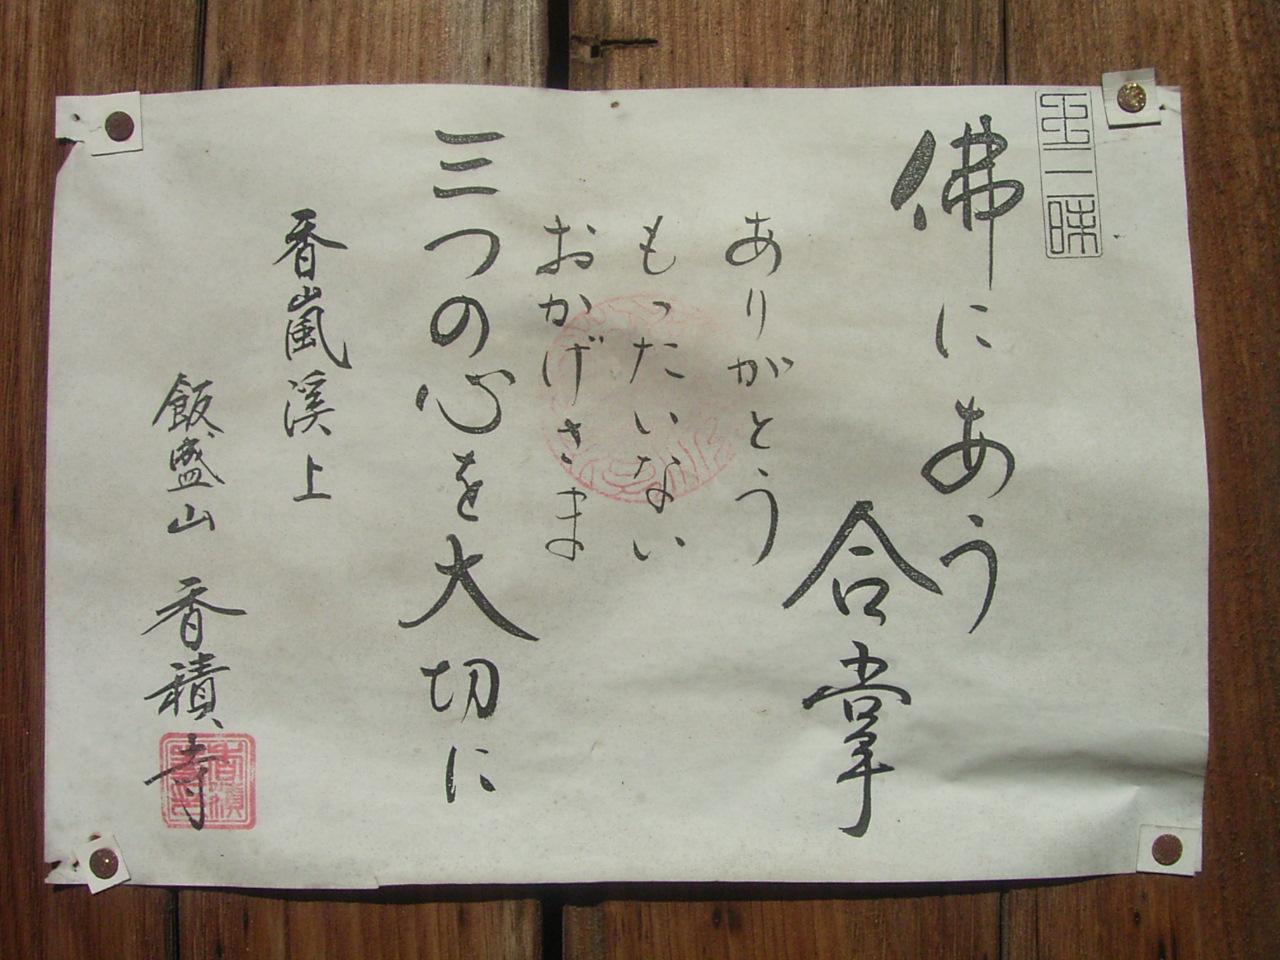 佛にあう
合掌
ありがとう
もったいない
おかげさま
三つの心を大切に
香嵐溪上
飯盛山 香積寺